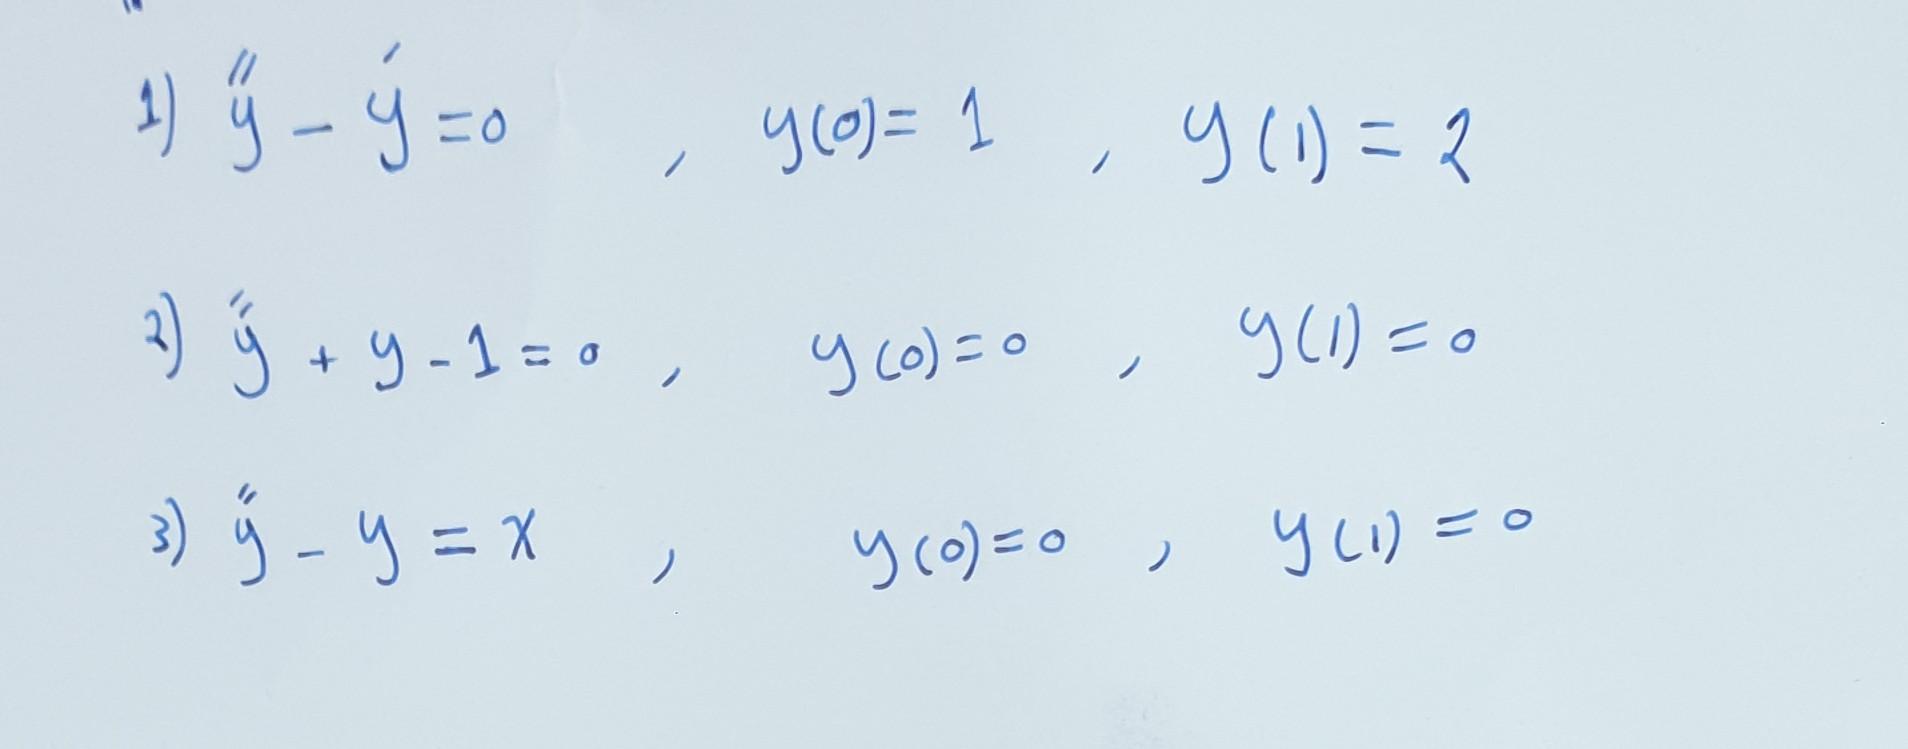 1) y'' - y' = 0 , y(0) = 1 , y(1) = 2
2) y'' + y - 1 = 0 , y(0) = 0 , y(1) = 0
3) y'' - y = x , y(0) = 0 , y(1) = 0